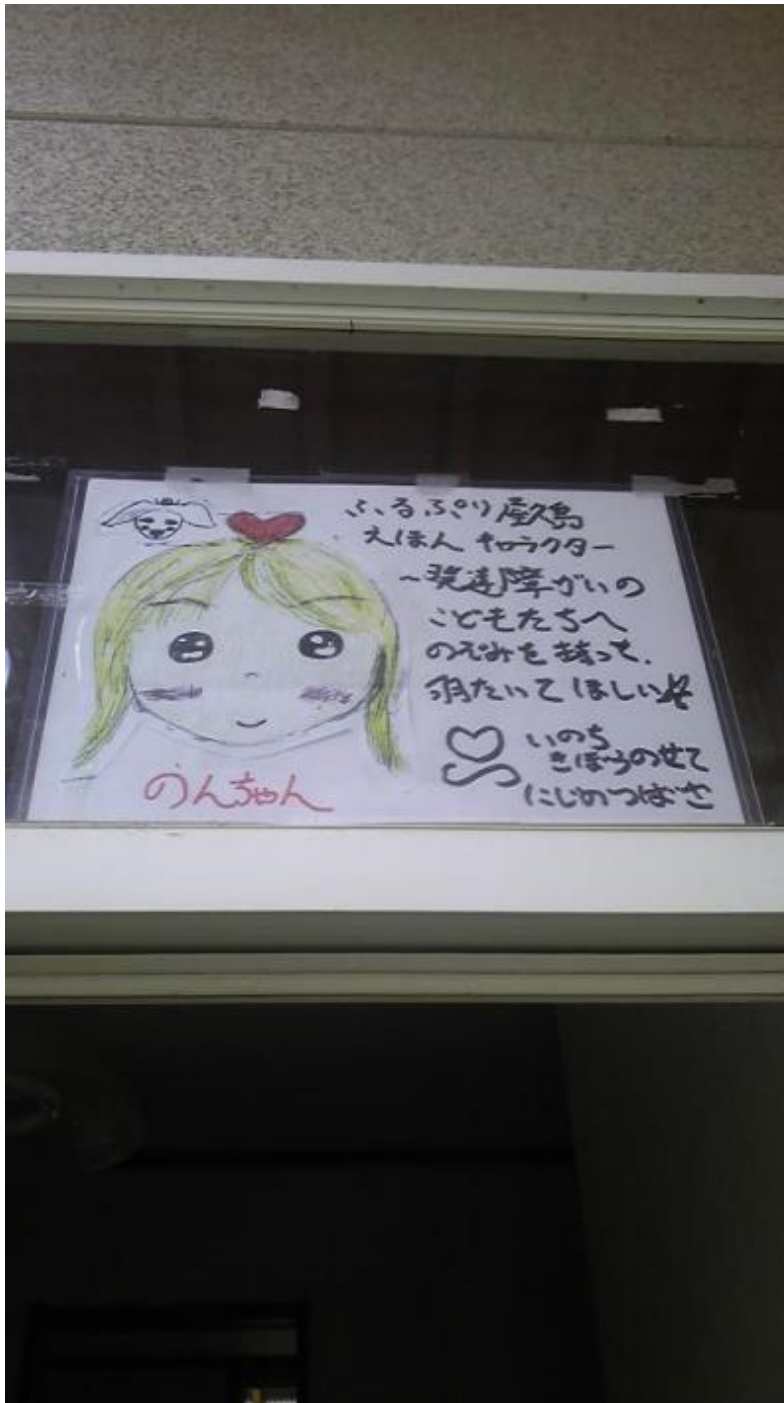 ふるぷり屋久島
えほん キャラクター
～発達障がいの
こどもたちへ
のぞみを持って、
羽たいてほしい
いのち
きぼうのせて
にじのつばさ
のんちゃん